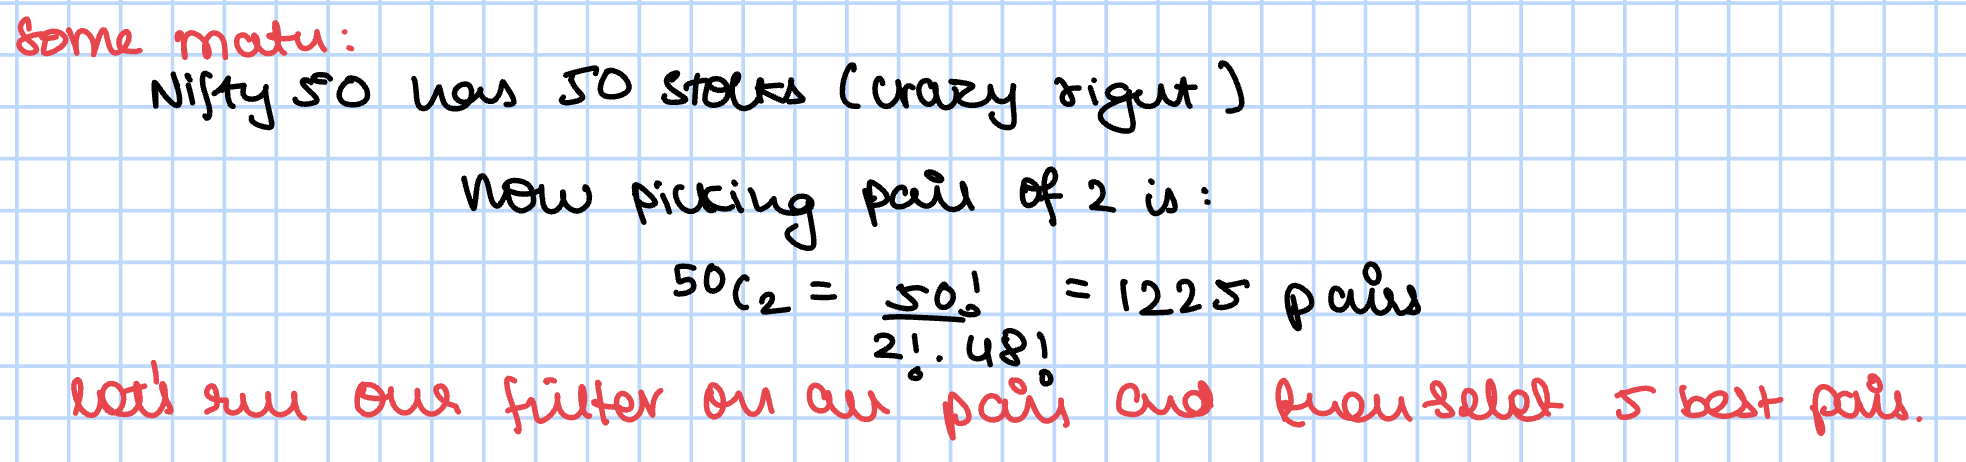 Some math:
Nifty 50 has 50 stocks (crazy right)
Now picking pair of 2 is:
⁵⁰C₂ = 50! / 2! . 48! = 1225 pairs
Let's run our filter on all pairs and then select 5 best pairs.